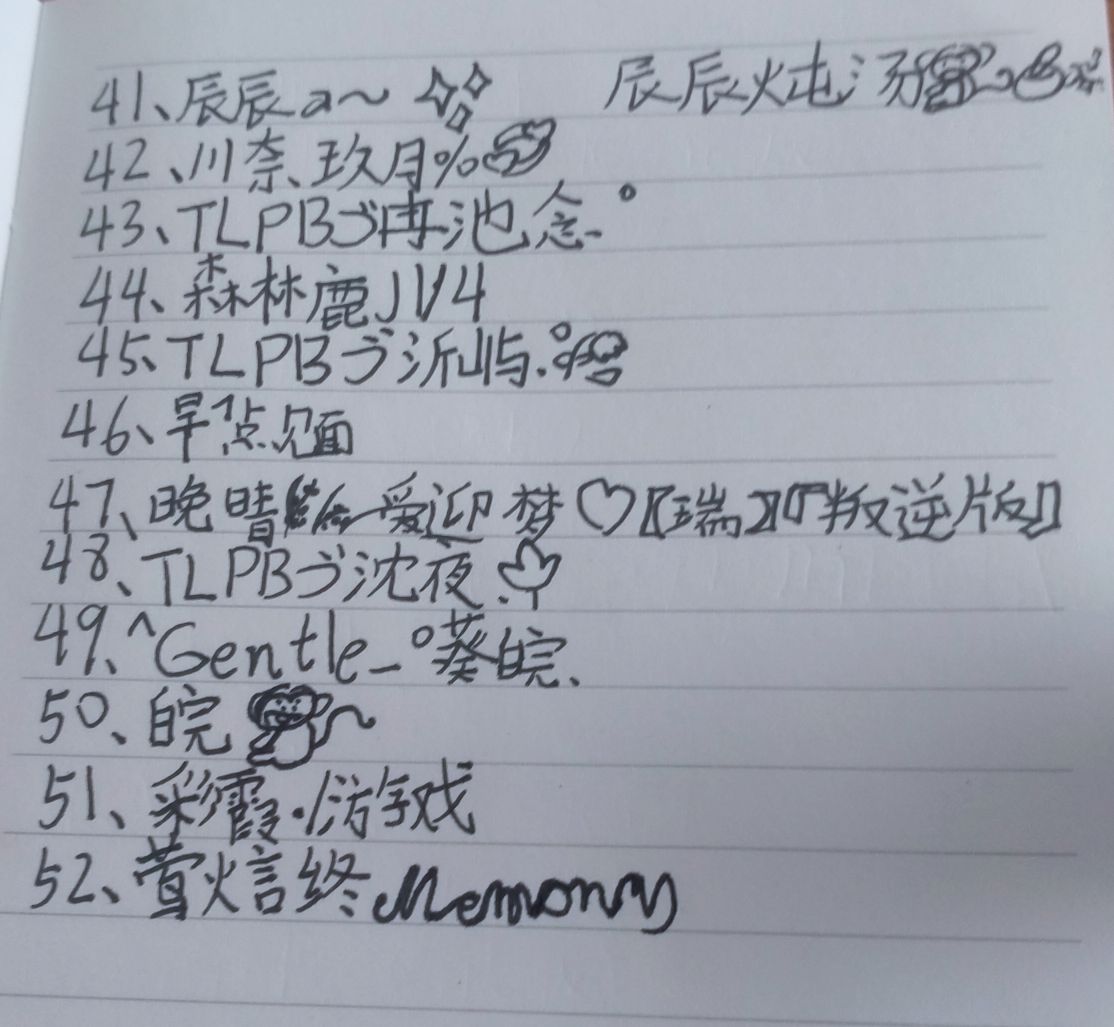 41、辰辰a~ 辰辰炖汤
42、川奈、玖月%
43、TLPBゔ再池念-°
44、森林鹿JV4
45、TLPBゔ沂屿.°
46、早点见面
47、晚晴 爱迎梦♡【瑞】『叛逆版』
48、TLPBゔ沈夜.
49、^Gentle_°葵皖、
50、皖
51、彩霞·游戏
52、萤火 终Memonry